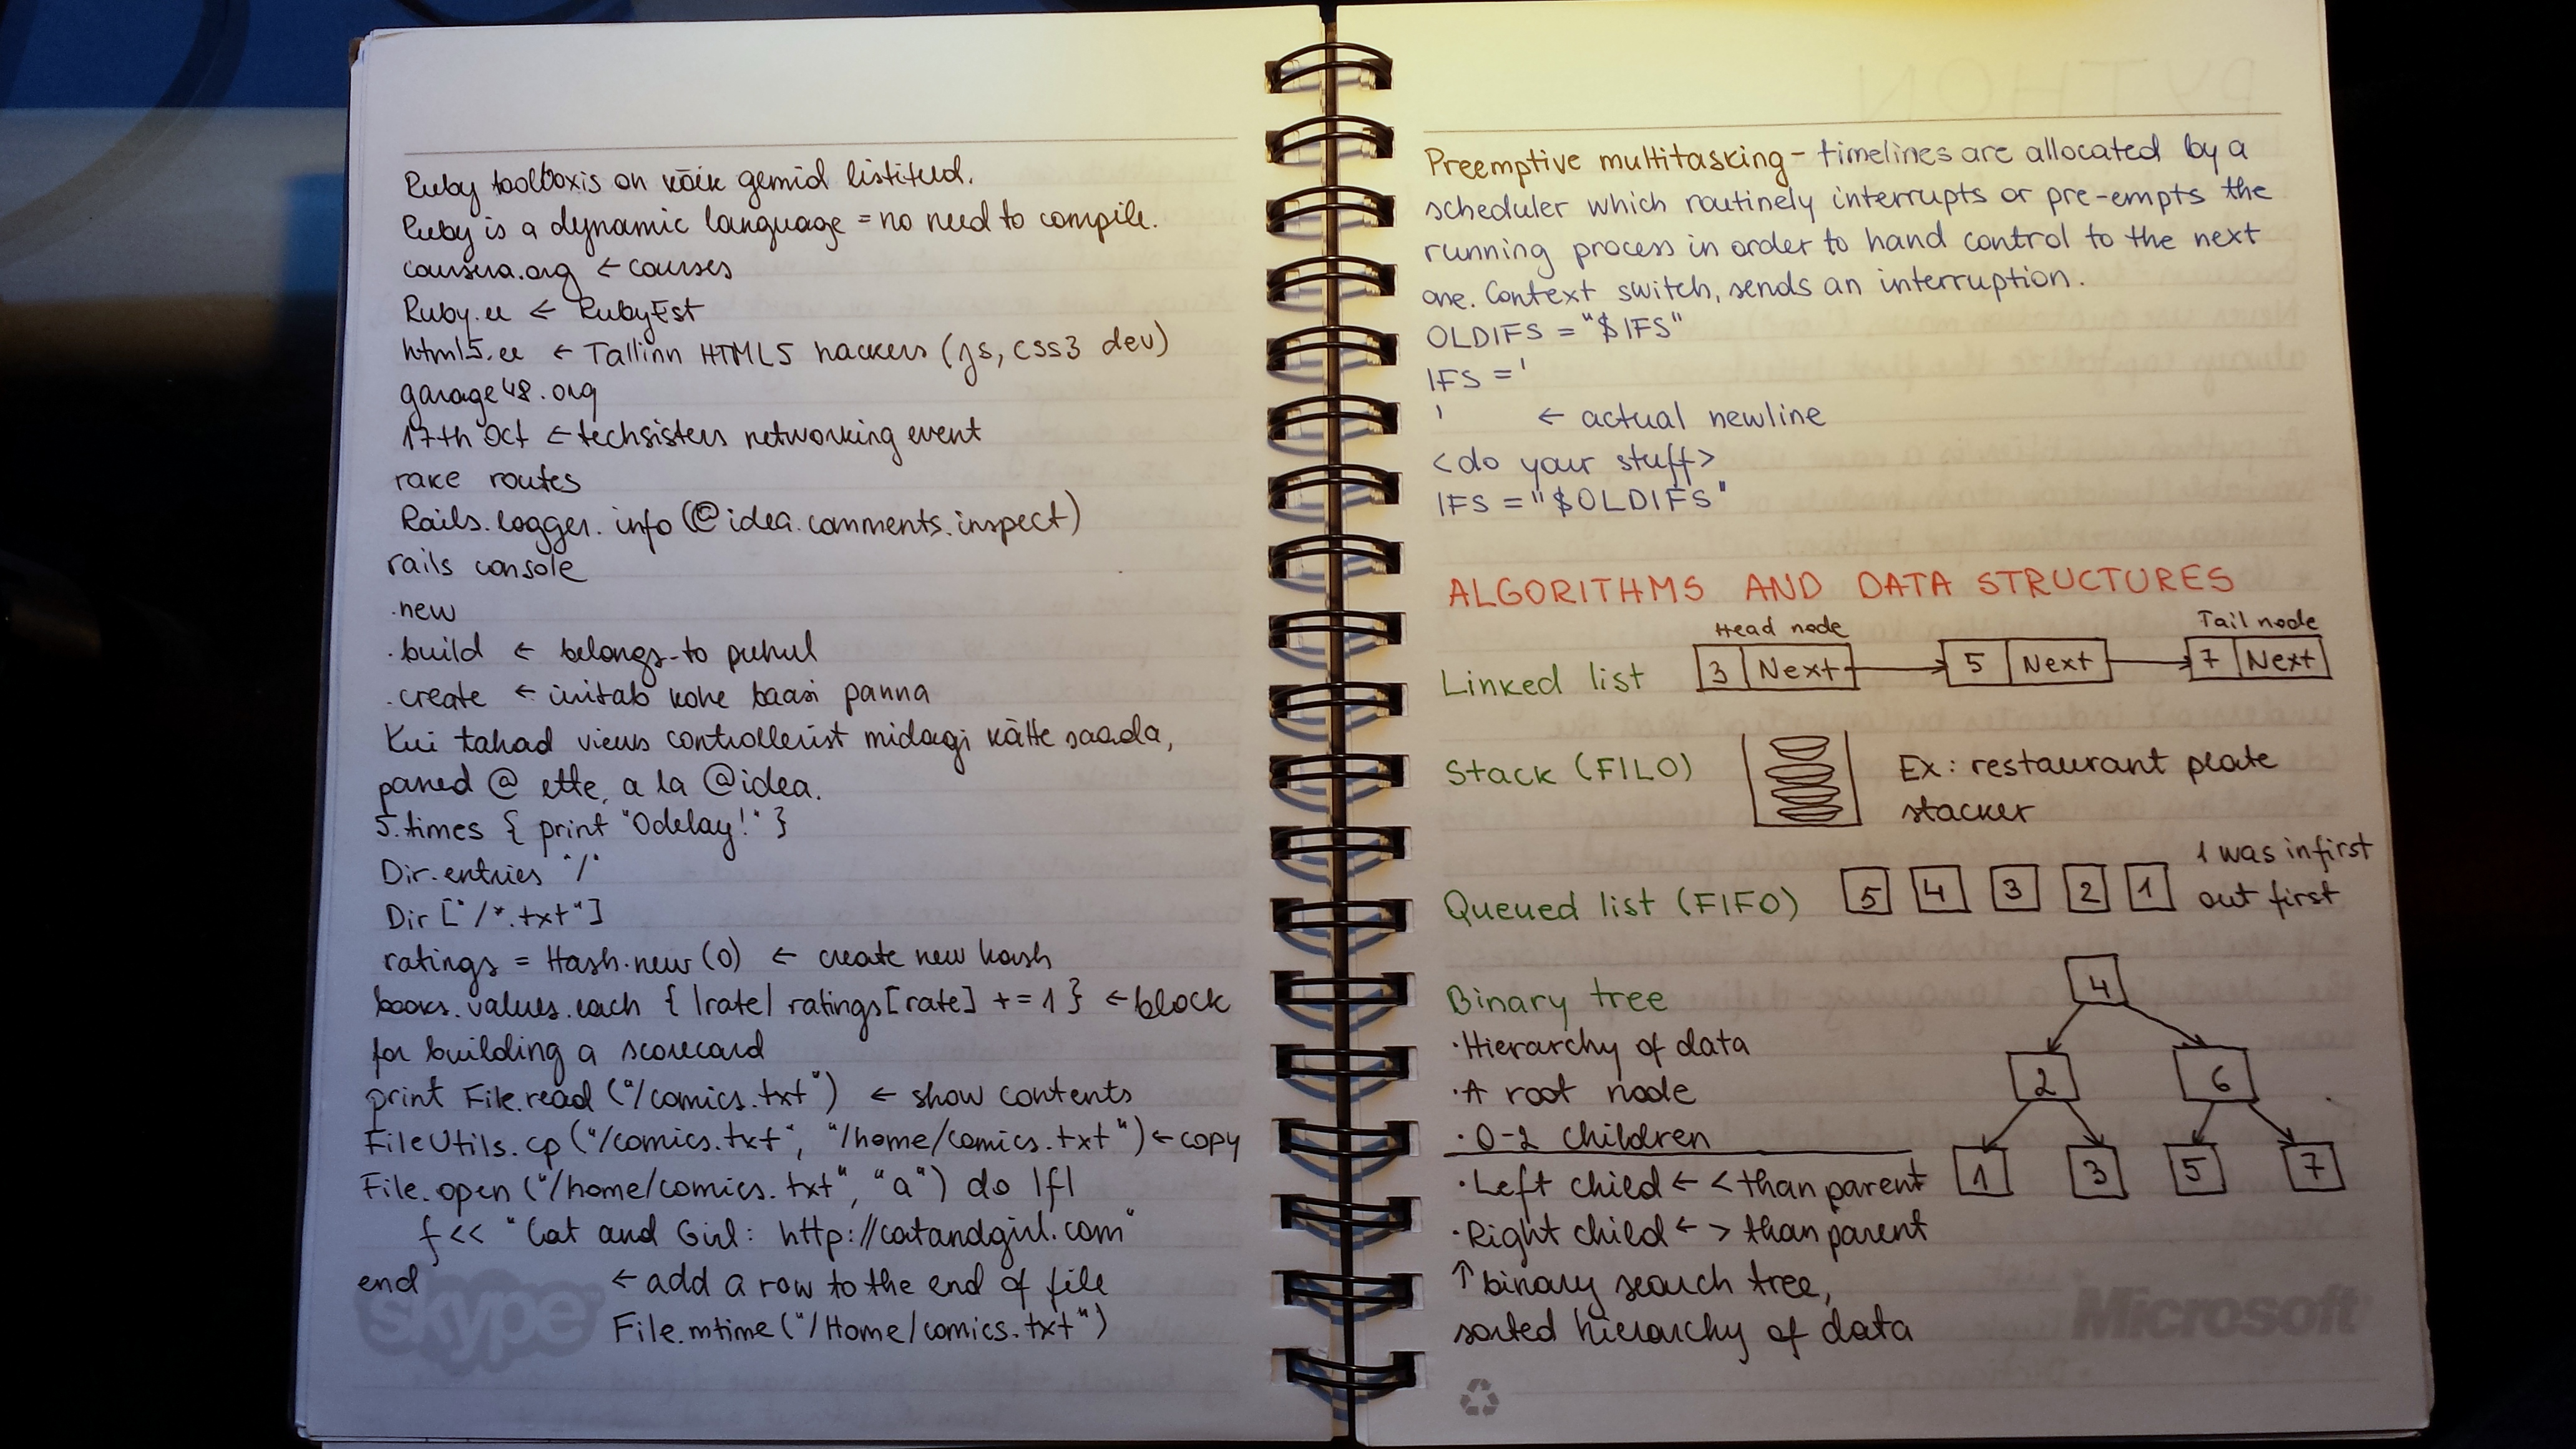 Ruby toolboxis on kõik gemid listitud.
Ruby is a dynamic language = no need to compile.
coursera.org ← courses
Ruby.ee ← RubyEst
html5.ee ← Tallinn HTML5 hackers (js, css3 dev)
garage48.org
17th Oct ← techsisters networking event
rake routes
Rails.logger.info(@idea.comments.inspect)
rails console
.new
.build ← belongs-to puhul
.create ← üritab kohe baasi panna
Kui tahad views controllerist midagi kätte saada,
paned @ ette, a la @idea.
5.times { print "Odelay!" }
Dir.entries "/"
Dir ["/*.txt"]
ratings = Hash.new(0) ← create new hash
books.values.each { |rate| ratings[rate] += 1 } ← block
for building a scorecard
print File.read("/comics.txt") ← show contents
FileUtils.cp("/comics.txt", "/home/comics.txt") ← copy
File.open("/home/comics.txt", "a") do |f|
f << "Cat and Girl: http://catandgirl.com"
end ← add a row to the end of file
File.mtime("/Home/comics.txt")
skype™
PYTHON
Preemptive multitasking - timelines are allocated by a
scheduler which routinely interrupts or pre-empts the
running process in order to hand control to the next
one. Context switch, sends an interruption.
OLDIFS = "$IFS"
IFS = '
' ← actual newline
<do your stuff>
IFS = "$OLDIFS"
ALGORITHMS AND DATA STRUCTURES
Head node Tail node
Linked list 3 Next 5 Next 7 Next
Stack (FILO) Ex: restaurant plate
stacker
Queued list (FIFO) 5 4 3 2 1 1 was in first
out first
Binary tree 4
·Hierarchy of data
·A root node 2 6
·0-2 children
·Left child ← < than parent 1 3 5 7
·Right child ← > than parent
↑ binary search tree,
sorted hierarchy of data
Microsoft